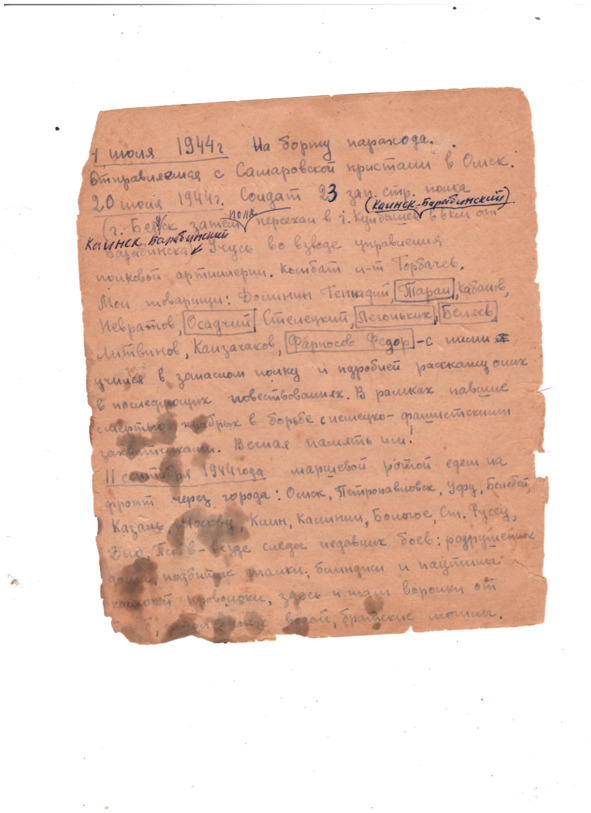 1 июля 1944г На борту парохода.
Отправляемся с Самаровской пристани в Омск.
20 июля 1944г. Солдат 23 зап. стр. полка
(Каинск-Барабинский)
(г. Бердск затем полк переехал в г. Куйбышев, в вкм от
Каинск Барабинский
Барабинска. Учусь во взводе управления
полковой артиллерии. Комбат л-т Горбачев.
Мои товарищи: Фоминин Геннадий, Таран, Кабашов,
Невратов, Осадчий, Стелецкий, Легоньких, Беляев,
Литвинов, Канзачаков, Фарносов Федор - с ними
учимся в запасном полку и подробней расскажу о них
в последующих повествованиях. В рамках павшие
смертью храбрых в борьбе с немецко-фашистскими
захватчиками. Вечная память им!
11 сентября 1944 года маршевой ротой едем на
фронт через города: Омск, Петропавловск, Уфу, Белебей,
Казань, Москву, Клин, Калинин, Бологое, Ст. Руссу,
Псков - везде следы недавних боев: разрушенные
дома, подбитые танки, блиндажи и паутины
колючей проволоки, здесь и там воронки от
водой, братские могилы.